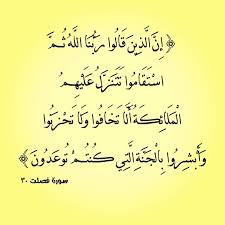 ﴿ إِنَّ الَّذِينَ قَالُوا رَبُّنَا اللَّهُ ثُمَّ
اسْتَقَامُوا تَتَنَزَّلُ عَلَيْهِمُ
الْمَلَائِكَةُ أَلَّا تَخَافُوا وَلَا تَحْزَنُوا
وَأَبْشِرُوا بِالْجَنَّةِ الَّتِي كُنتُمْ تُوعَدُونَ ﴾
سورة فصلت ٣٠